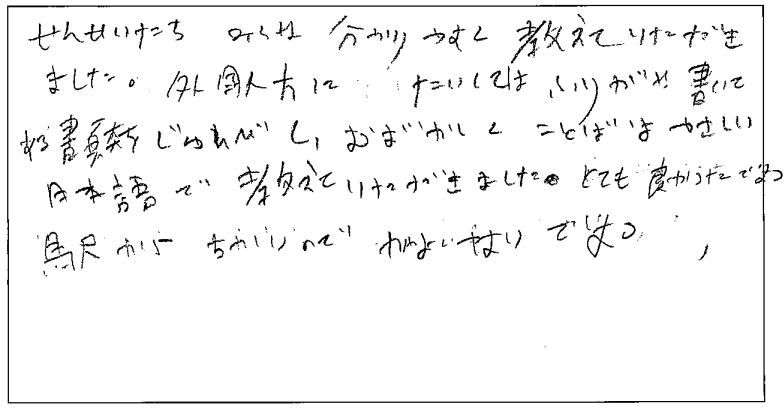 せんせいたち みんな 分かりやすく 教えていただき
ました。外国人方に たいしては ふりがな 書いて
ある書類を じゅんびし、むずかしく ことばは やさしい
日本語で 教えていただきました。とても 良かったです。
駅から ちかいので かよいやすいです。